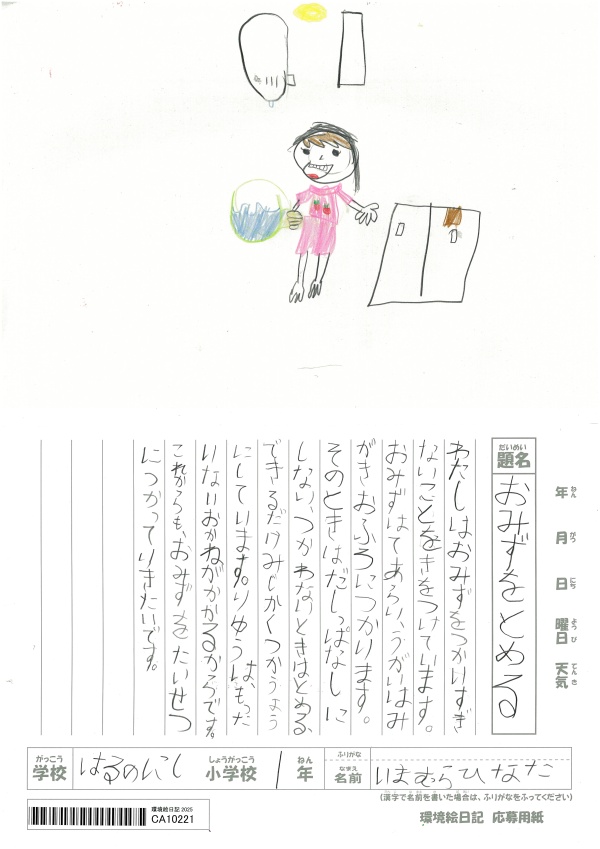 だいめい
題名
おみずをとめる
ねん
年
がつ
月
にち
日
ようび
曜日
てんき
天気
わたしはおみずをつかいすぎ
ないことをきをつけています。
おみずはてあらい、うがいはみ
がきおふろにつかります。
そのときはだしっぱなしに
しない、つかわないときはとめる、
できるだけみじかくつかうよう
にしています。りゆうは、もった
いないおかねがかかるからです。
これからも、おみずをたいせつ
につかっていきたいです。
がっこう
学校
はるのにし
しょうがっこう
小学校
1
ねん
年
ふりがな
なまえ
名前
いまむらひなた
(漢字で名前を書いた場合は、ふりがなをふってください)
環境絵日記 2025
CA10221
環境絵日記 応募用紙